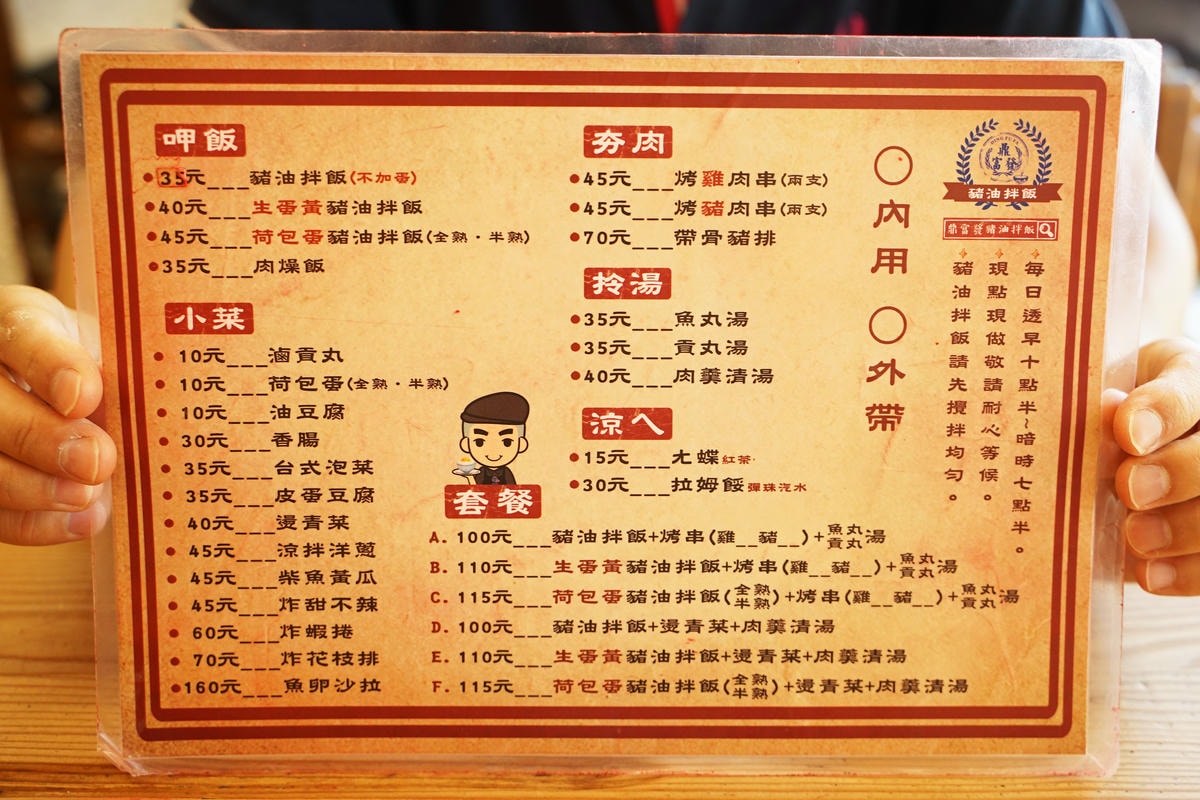 呷飯
35元___豬油拌飯(不加蛋)
40元___生蛋黃豬油拌飯
45元___荷包蛋豬油拌飯(全熟・半熟)
35元___肉燥飯
小菜
10元___滷貢丸
10元___荷包蛋(全熟・半熟)
10元___油豆腐
30元___香腸
35元___台式泡菜
35元___皮蛋豆腐
40元___燙青菜
45元___涼拌洋蔥
45元___柴魚黃瓜
45元___炸甜不辣
60元___炸蝦捲
70元___炸花枝排
160元___魚卵沙拉
夯肉
45元___烤雞肉串(兩支)
45元___烤豬肉串(兩支)
70元___帶骨豬排
拎湯
35元___魚丸湯
35元___貢丸湯
40元___肉羹清湯
涼ㄟ
15元___ㄤ蝶紅茶
30元___拉姆餒彈珠汽水
套餐
A. 100元___豬油拌飯+烤串(雞__豬__)+魚丸貢丸湯
B. 110元___生蛋黃豬油拌飯+烤串(雞__豬__)+魚丸貢丸湯
C. 115元___荷包蛋豬油拌飯(全熟半熟)+烤串(雞__豬__)+魚丸貢丸湯
D. 100元___豬油拌飯+燙青菜+肉羹清湯
E. 110元___生蛋黃豬油拌飯+燙青菜+肉羹清湯
F. 115元___荷包蛋豬油拌飯(全熟半熟)+燙青菜+肉羹清湯
○內用○外帶
鼎富發
豬油拌飯
鼎富發豬油拌飯
每日透早十點半~暗時七點半。
現點現做敬請耐心等候。
豬油拌飯請先攪拌均勻。